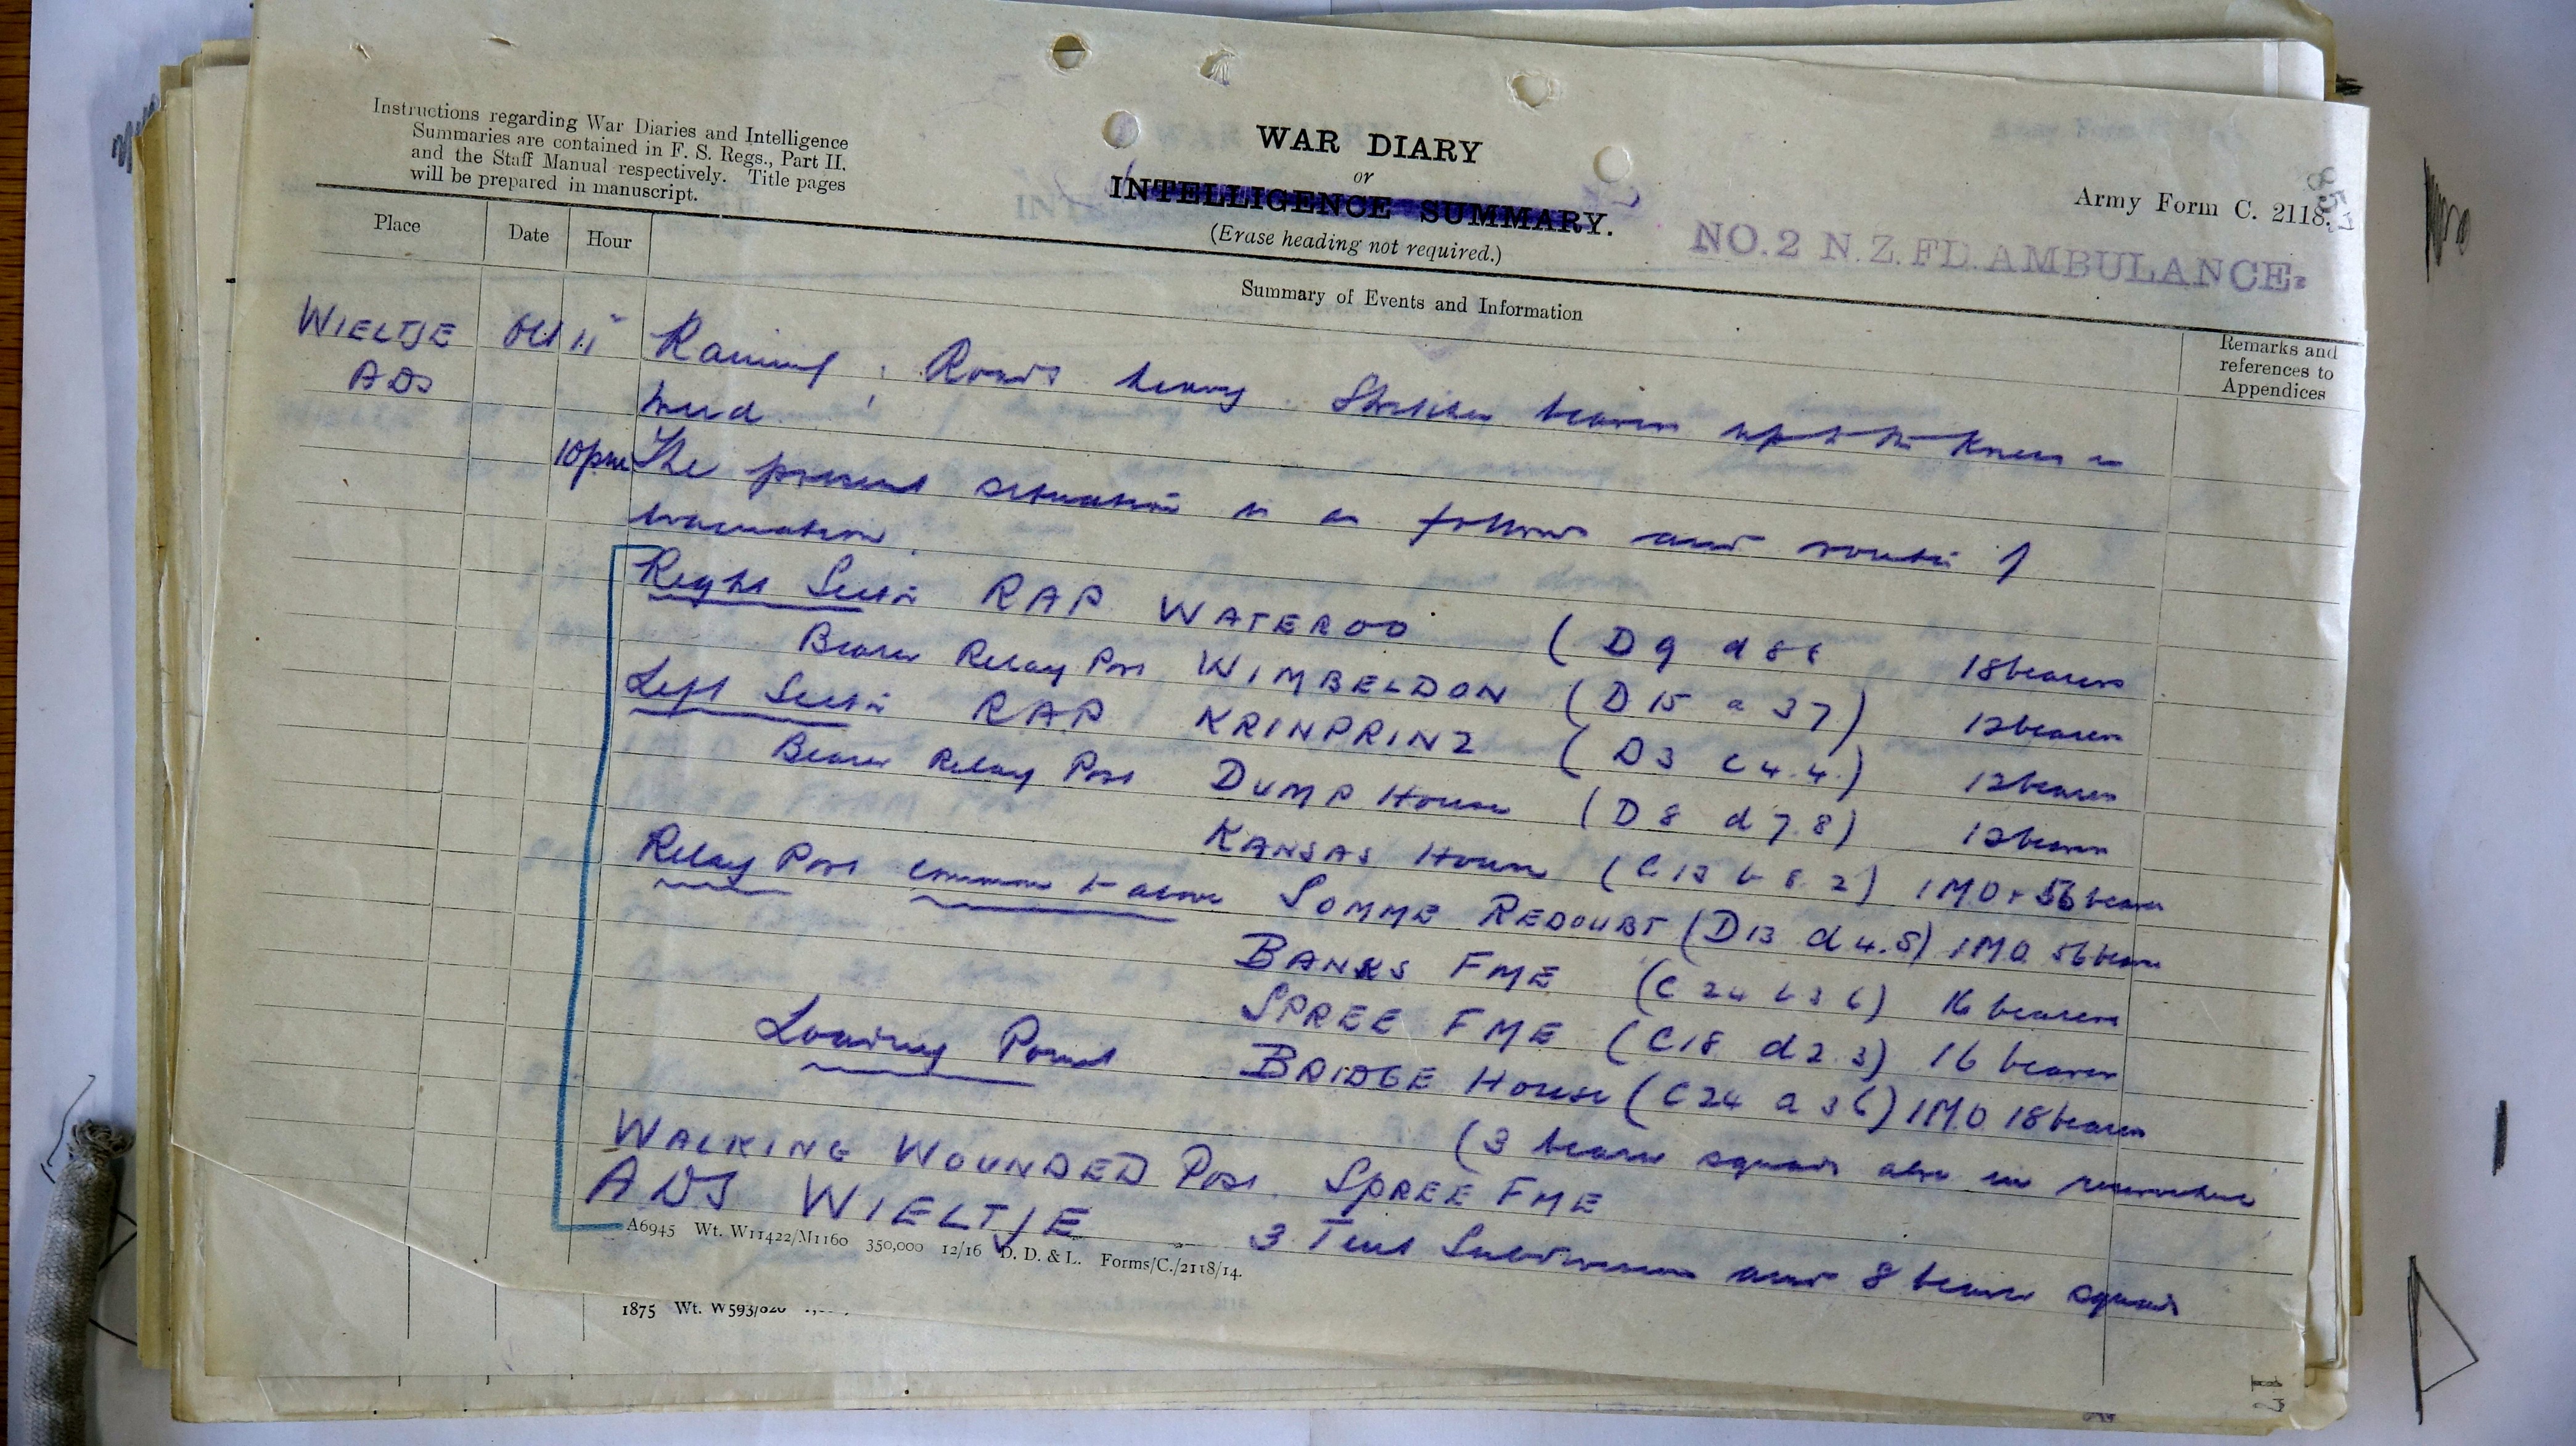 Instructions regarding War Diaries and Intelligence
Summaries are contained in F. S. Regs., Part II.
and the Staff Manual respectively. Title pages
will be prepared in manuscript.
WAR DIARY
or
INTELLIGENCE SUMMARY.
(Erase heading not required.)
Army Form C. 2118.
NO. 2 N.Z. FD. AMBULANCE.
Place Date Hour
Summary of Events and Information
Remarks and
references to
Appendices
WIELTJE Oct 11" Raining; Roads heavy. Stretcher bearers up to the knees in
ADS mud
10pm The present situation is as follows and route of
evacuation.
Right Sector RAP WATEROO (D 9 d 8 8 18 bearers
Bearer Relay Post WIMBELDON (D 15 a 3 7) 12 bearers
Left Sector RAP KRINPRINZ (D3 c 4.4.) 12 bearers
Bearer Relay Post DUMP House (D 8 d 7.8) 12 bearers
KANSAS House (C 18 b 8. 2) 1 MO + 56 bearers
Relay Post common to above SOMME REDOUBT (D13 d 4.5) 1 MO 56 bearers
BANKS FME (C 24 b 3 6) 16 bearers
SPREE FME (C18 d 2 3) 16 bearers
Loading Point BRIDGE House (C 24 a 3 6) 1 MO 18 bearers
(3 bearer squads also in reserve here
WALKING WOUNDED Post. SPREE FME
ADS WIELTJE 3 Tent Subdivisions and 8 bearer squads
A6945 Wt. W11422/M1160 350,000 12/16 D. D. & L. Forms/C./2118/14.
1875 Wt. W593/826